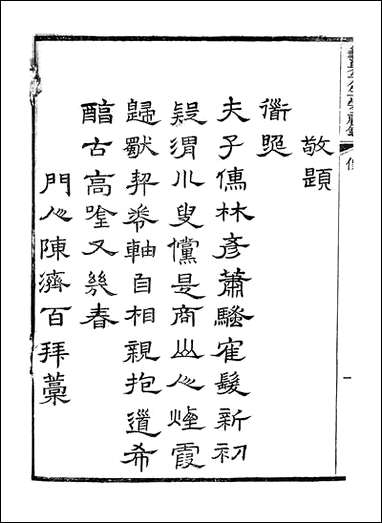 敬題
衜照
夫子儒林彥蕭騷隺髮新初
疑渭川叟儻是商山人煙霞
歸默契卷軸自相親抱道希
醕古高唫又幾春
門人陳濟百拜藁
一